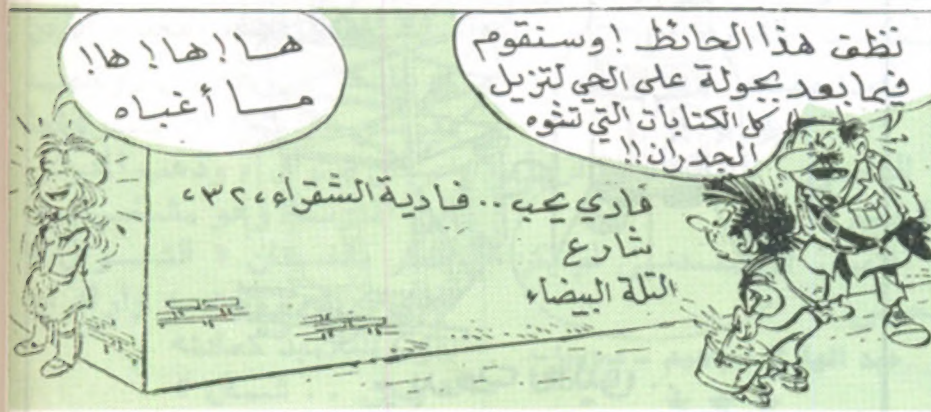 نظف هذا الحائط ! وستقوم
فيما بعد بجولة على الحي لتزيل
كل الكتابات التي تشوه
الجدران !!
هــا ! ها ! ها !
مــا أغباه
فادي يحب .. فادية الشقراء ، ٣٢ ،
شارع
التلة البيضاء